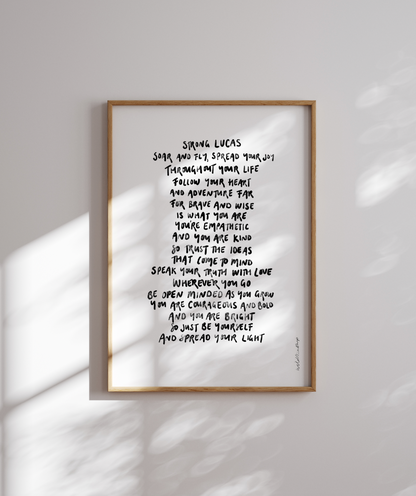 STRONG LUCAS
SOAR AND FLY, SPREAD YOUR JOY
THROUGHOUT YOUR LIFE
FOLLOW YOUR HEART
AND ADVENTURE FAR
FOR BRAVE AND WISE
IS WHAT YOU ARE
YOU'RE EMPATHETIC
AND YOU ARE KIND
SO TRUST THE IDEAS
THAT COME TO MIND
SPEAK YOUR TRUTH WITH LOVE
WHEREVER YOU GO
BE OPEN MINDED AS YOU GROW
YOU ARE COURAGEOUS AND BOLD
AND YOU ARE BRIGHT
SO JUST BE YOURSELF
AND SPREAD YOUR LIGHT